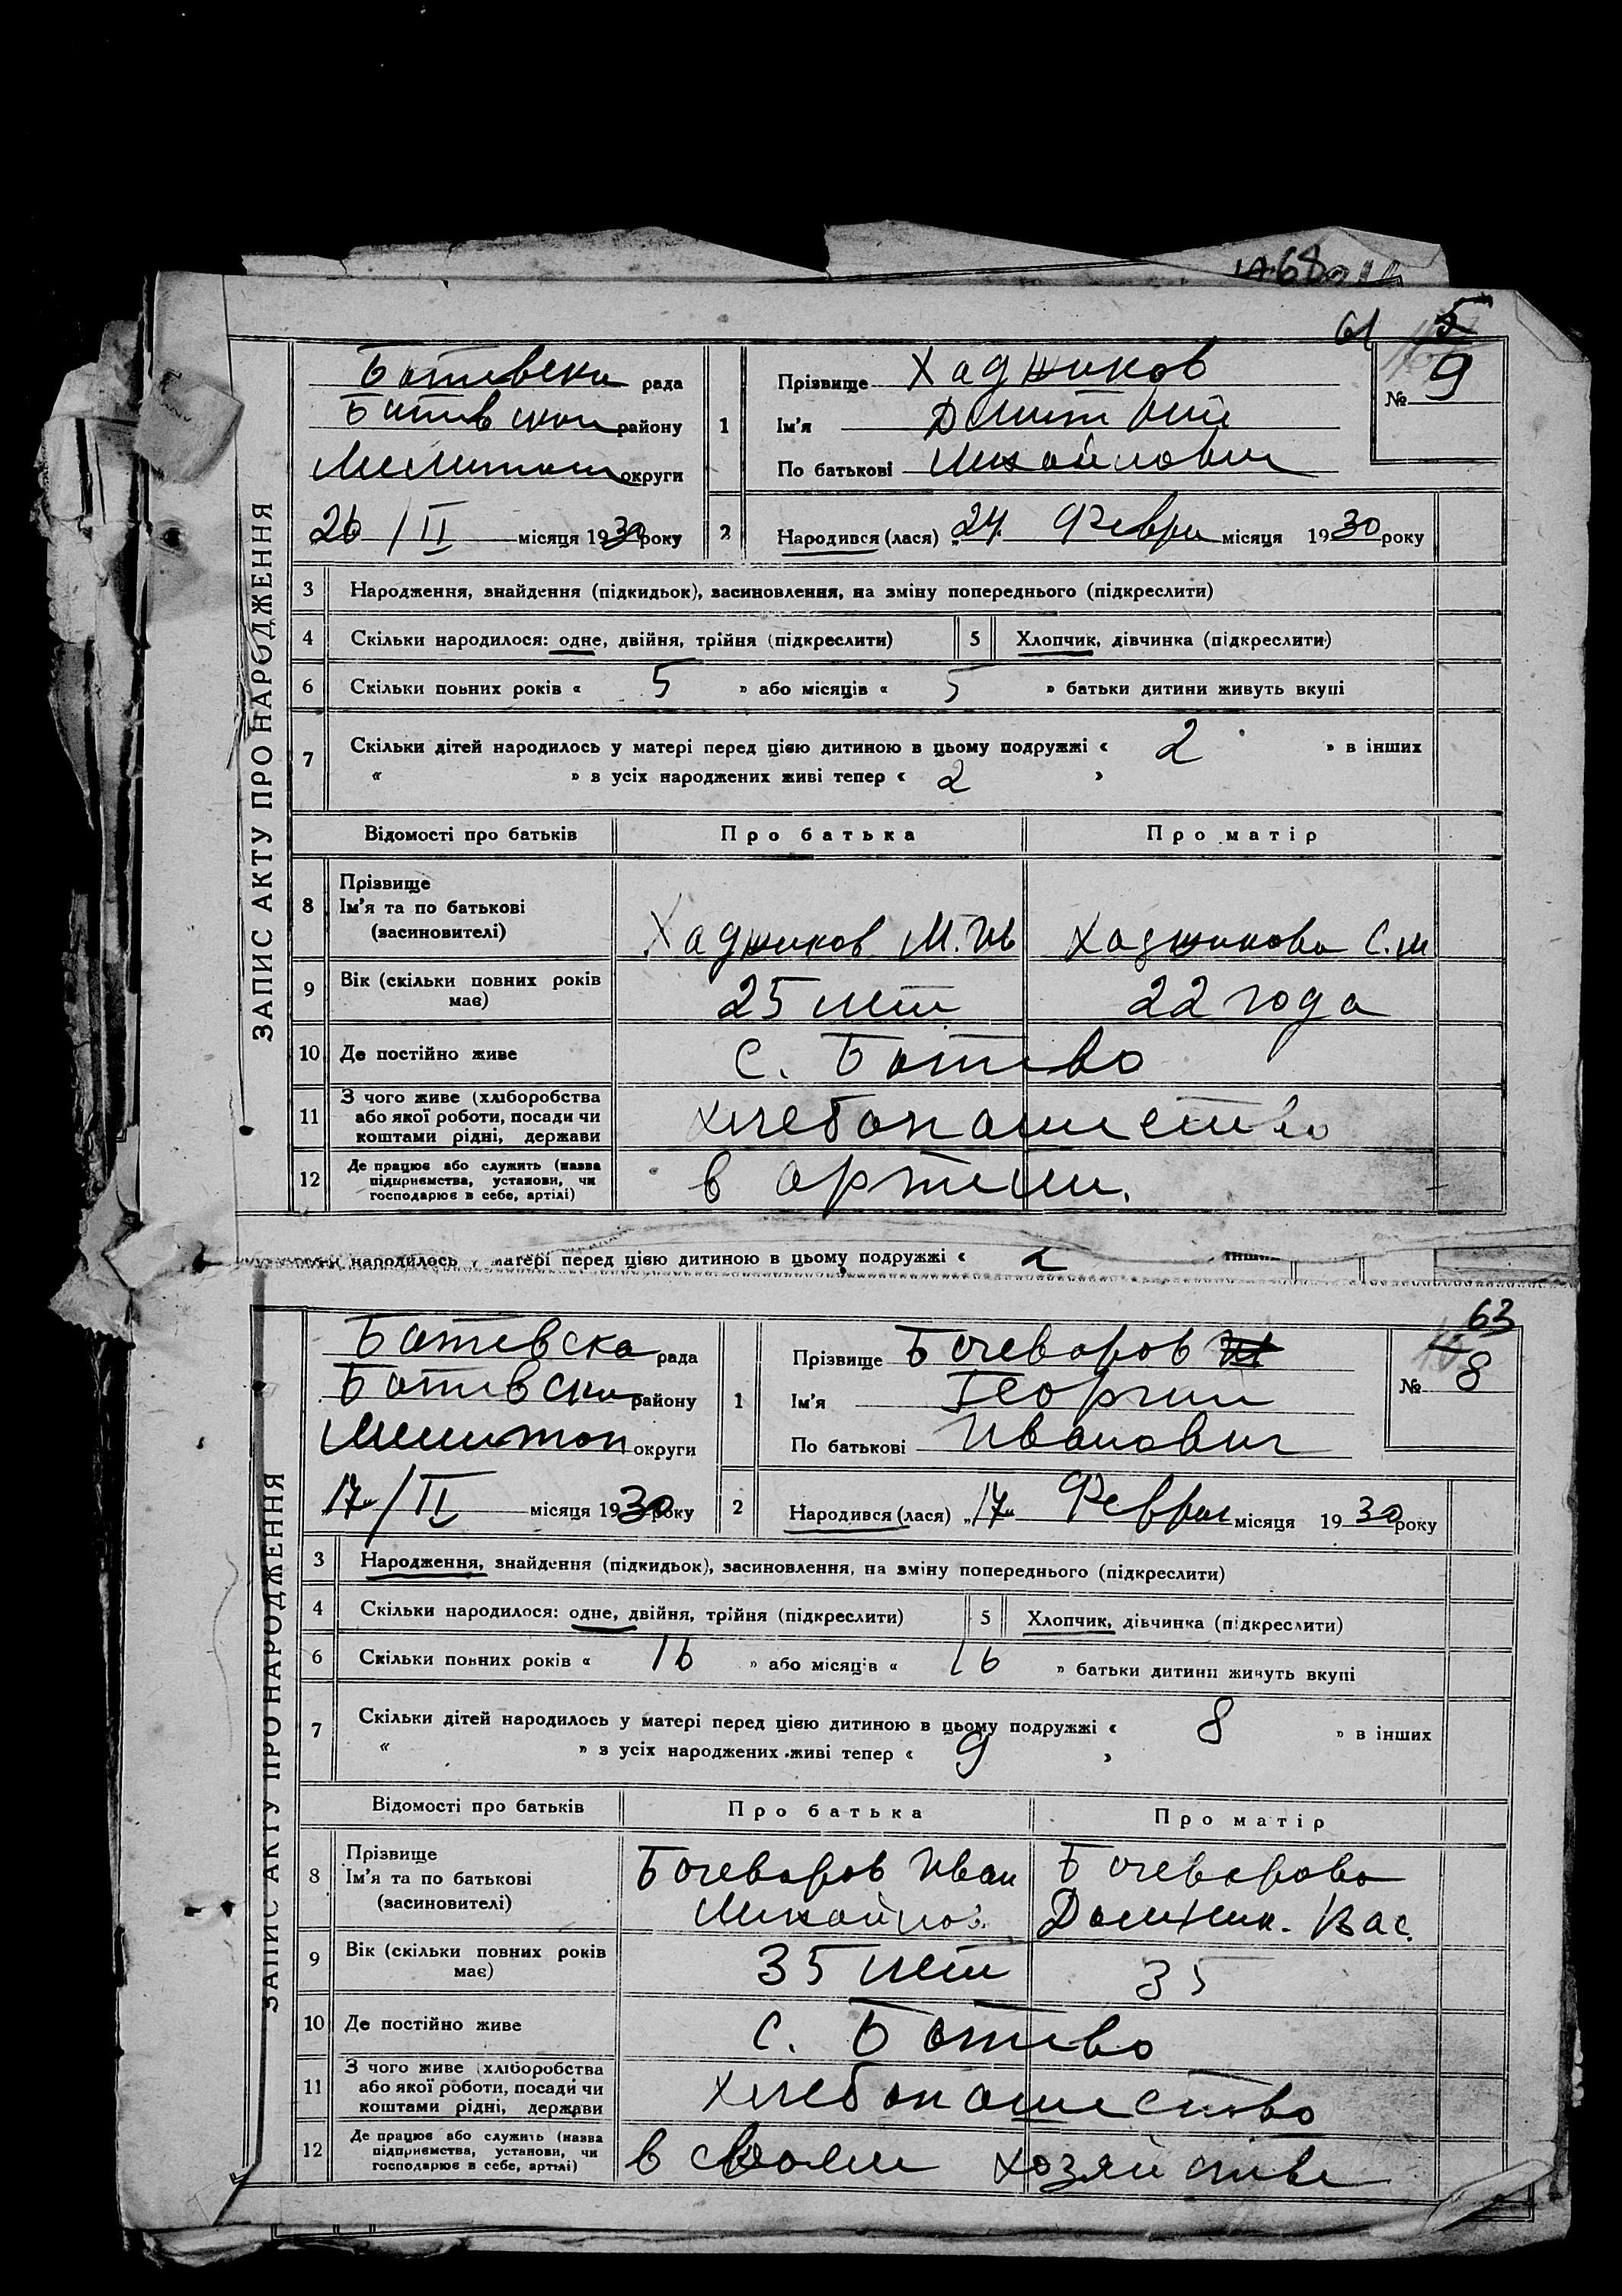 61
ЗАПИС АКТУ ПРО НАРОДЖЕННЯ
Ботивска рада
Ботивскои району
Мелитоп округи
26 / II місяця 1930 року
1 Прізвище Хаджиков
Ім'я Дмитрий
По батькові Михайлович
№ 9
2 Народився (лася) „24 Феврал місяця 1930 року
3 Народження, знайдення (підкидьок), засиновлення, на зміну попереднього (підкреслити)
4 Скільки народилося: одне, двійня, трійня (підкреслити) 5 Хлопчик, дівчинка (підкреслити)
6 Скільки повних років « 5 » або місяців « 5 » батьки дитини живуть вкупі
7 Скільки дітей народилось у матері перед цією дитиною в цьому подружжі « 2 » в інших
« » в усіх народжених живі тепер « 2 »
Відомості про батьків Про батька Про матір
8 Прізвище
Ім'я та по батькові
(засиновителі)
Хаджиков М. Ив Хаджикова С. М
9 Вік (скільки повних років
має)
25 лет 22 года
10 Де постійно живе с. Ботиево
11 З чого живе (хліборобства
або якої роботи, посади чи
коштами рідні, держави
хлебопашество
12 Де працює або служить (назва
підприємства, установи, чи
господарює в себе, артілі)
в артели.
народилось у матері перед цією дитиною в цьому подружжі « 2
63
ЗАПИС АКТУ ПРО НАРОДЖЕННЯ
Ботевска рада
Ботивскои району
Мелитоп округи
17 / II місяця 1930 року
1 Прізвище Бочеваров
Ім'я Георгии
По батькові Иванович
№ 8
2 Народився (лася) „17 Феврал місяця 1930 року
3 Народження, знайдення (підкидьок), засиновлення, на зміну попереднього (підкреслити)
4 Скільки народилося: одне, двійня, трійня (підкреслити) 5 Хлопчик, дівчинка (підкреслити)
6 Скільки повних років « 16 » або місяців « 16 » батьки дитини живуть вкупі
7 Скільки дітей народилось у матері перед цією дитиною в цьому подружжі « 8 » в інших
« » в усіх народжених живі тепер « 9 »
Відомості про батьків Про батька Про матір
8 Прізвище
Ім'я та по батькові
(засиновителі)
Бочеваров Иван Бочеварова
Михайлов. Вас.
9 Вік (скільки повних років
має)
35 лет 35
10 Де постійно живе с. Ботиево
11 З чого живе (хліборобства
або якої роботи, посади чи
коштами рідні, держави
хлебопашество
12 Де працює або служить (назва
підприємства, установи, чи
господарює в себе, артілі)
в своем хозяйстве